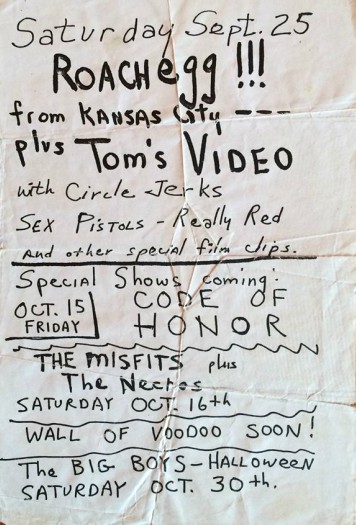 Saturday Sept. 25
ROACHEgg !!!
from KANSAS City ---
plus Tom's VIDEO
with Circle Jerks
SEX PISTOLS - Really Red
And other special film clips.
Special Shows coming:
OCT. 15 CODE OF
FRIDAY HONOR
THE MISFITS plus
The Necros
SATURDAY OCT. 16th
WALL OF VOODOO SOON!
The BIG BOYS - HALLOWEEN
SATURDAY OCT. 30th.